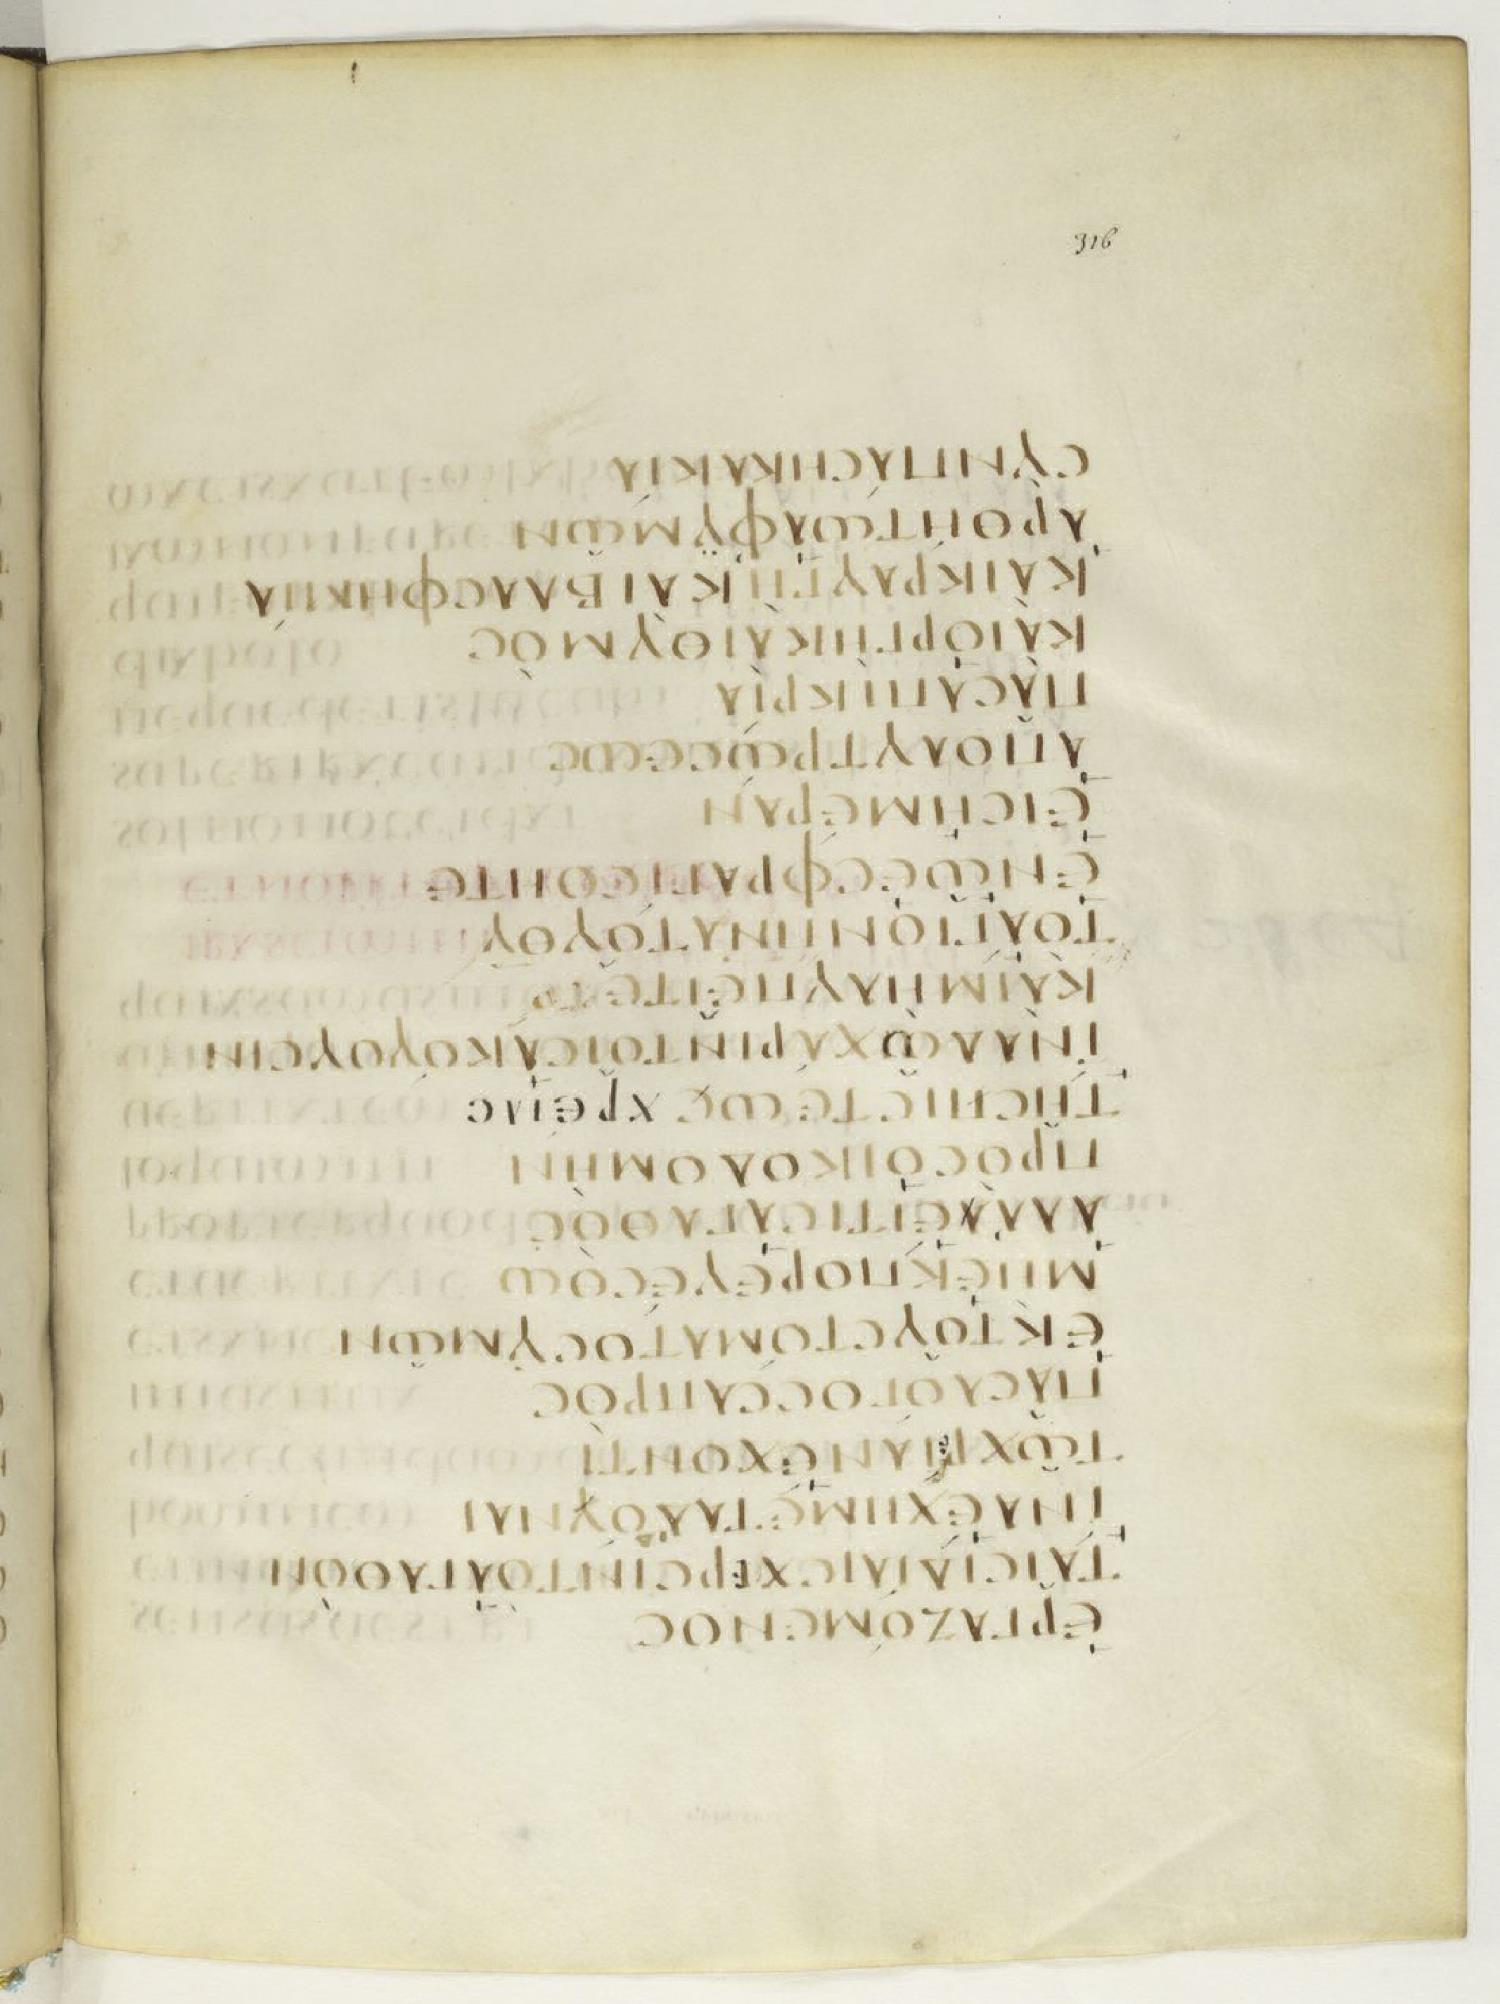 316
ΕΡΓΑΖΟΜΕΝΟϹ
ΤΑΙϹΙΔΙΑΙϹΧΕΡϹΙΝΤΟΑΓΑΘΟΝ
ΙΝΑΕΧΗΜΕΤΑΔΟΥΝΑΙ
ΤΩΧΡΕΙΑΝΕΧΟΝΤΙ
ΠΑϹΛΟΓΟϹϹΑΠΡΟϹ
ΕΚΤΟΥϹΤΟΜΑΤΟϹΥΜΩΝ
ΜΗΕΚΠΟΡΕΥΕϹΘΩ
ΑΛΛΑΕΙΤΙϹΑΓΑΘΟϹ
ΠΡΟϹΟΙΚΟΔΟΜΗΝ
ΤΗϹΠΙϹΤΕΩϹ ΧΡΕΙΑϹ
ΙΝΑΔΩΧΑΡΙΝΤΟΙϹΑΚΟΥΟΥϹΙΝ
ΚΑΙΜΗΛΥΠΕΙΤΕ
ΤΟΑΓΙΟΝΠΝΑΤΟΥΘΥ
ΕΝΩΕϹΦΡΑΓΙϹΘΗΤΕ
ΕΙϹΗΜΕΡΑΝ
ΑΠΟΛΥΤΡΩϹΕΩϹ
ΠΑϹΑΠΙΚΡΙΑ
ΚΑΙΟΡΓΗΚΑΙΘΥΜΟϹ
ΚΑΙΚΡΑΥΓΗΚΑΙΒΛΑϹΦΗΜΙΑ
ΑΡΘΗΤΩΑΦΥΜΩΝ
ϹΥΝΠΑϹΗΚΑΚΙΑ